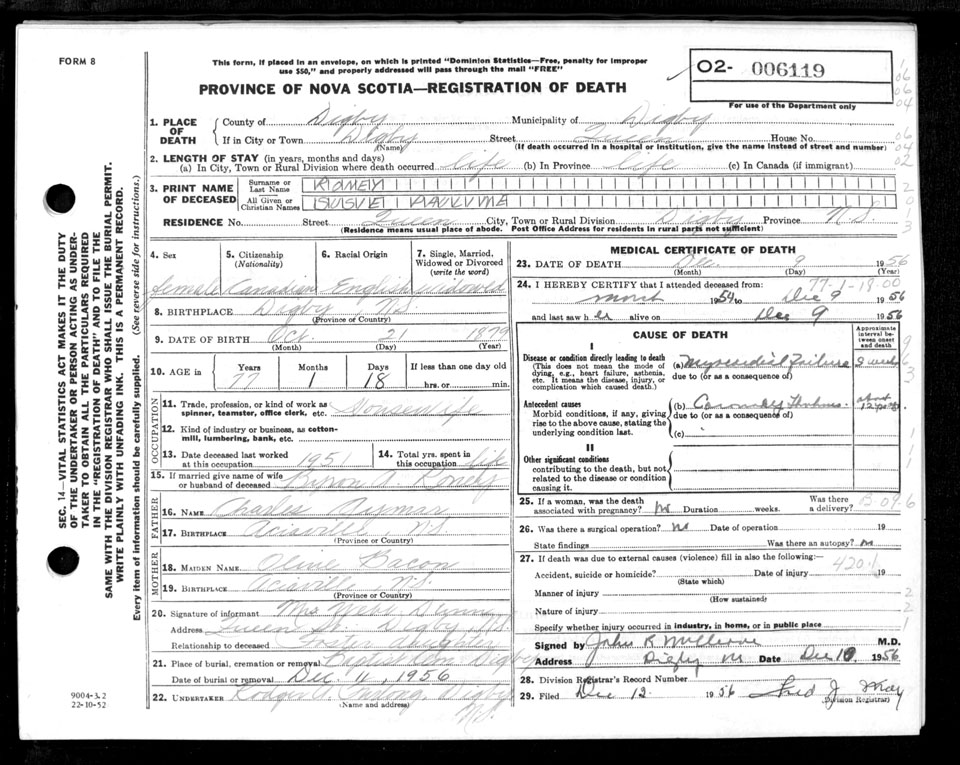 FORM 8
This form, if placed in an envelope, on which is printed "Dominion Statistics—Free, penalty for improper
use $50," and properly addressed will pass through the mail "FREE"
O2- 006119
For use of the Department only
PROVINCE OF NOVA SCOTIA—REGISTRATION OF DEATH
1. PLACE OF DEATH
County of Digby Municipality of Digby
If in City or Town Digby Street Queen House No.
(Name) (If death occurred in a hospital or institution, give the name instead of street and number)
2. LENGTH OF STAY (in years, months and days)
(a) In City, Town or Rural Division where death occurred life (b) In Province life (c) In Canada (if immigrant)
3. PRINT NAME OF DECEASED
Surname or Last Name
All Given or Christian Names
RESIDENCE No. Street Queen City, Town or Rural Division Digby Province N.S.
(Residence means usual place of abode. Post Office Address for residents in rural parts not sufficient)
4. Sex
5. Citizenship (Nationality)
6. Racial Origin
7. Single, Married, Widowed or Divorced (write the word)
female Canadian English Widowed
8. BIRTHPLACE Digby N.S.
(Province or Country)
9. DATE OF BIRTH Oct. 21 1879
(Month) (Day) (Year)
10. AGE in
Years Months Days If less than one day old
77 1 18 hrs. or min.
OCCUPATION
11. Trade, profession, or kind of work as
spinner, teamster, office clerk, etc. Housewife
12. Kind of industry or business, as cotton-
mill, lumbering, bank, etc.
13. Date deceased last worked
at this occupation 1951
14. Total yrs. spent in
this occupation life
15. If married give name of wife
or husband of deceased Byron A.
FATHER
16. NAME Charles Aymar
17. BIRTHPLACE N.S.
(Province or Country)
MOTHER
18. MAIDEN NAME Olive Bacon
19. BIRTHPLACE N.S.
(Province or Country)
20. Signature of informant Mrs
Address Queen St. Digby N.S.
Relationship to deceased Foster daughter
21. Place of burial, cremation or removal Digby
Date of burial or removal Dec 11, 1956
22. UNDERTAKER Digby
(Name and address)
N.S.
MEDICAL CERTIFICATE OF DEATH
23. DATE OF DEATH Dec. 9 1956
(Month) (Day) (Year)
24. I HEREBY CERTIFY that I attended deceased from: 77-1-18-00
1954 to Dec 9 1956
and last saw her alive on Dec 9 1956
CAUSE OF DEATH
Approximate interval between onset and death
I
Disease or condition directly leading to death
(This does not mean the mode of
dying, e.g., heart failure, asthenia,
etc. It means the disease, injury, or
complication which caused death.)
(a) Myocardial Failure 3 weeks
due to (or as a consequence of)
Antecedent causes
Morbid conditions, if any, giving
rise to the above cause, stating the
underlying condition last.
(b) Coronary about
due to (or as a consequence of)
(c)
II
Other significant conditions
contributing to the death, but not
related to the disease or condition
causing it.
25. If a woman, was the death
associated with pregnancy? No Duration weeks. Was there a delivery?
26. Was there a surgical operation? No Date of operation 19
State findings Was there an autopsy? no
27. If death was due to external causes (violence) fill in also the following:
Accident, suicide or homicide? Date of injury 19
420.1
(State which)
Manner of injury
(How sustained)
Nature of injury
Specify whether injury occurred in industry, in home, or in public place
Signed by John R M.D.
Address Digby Date Dec 10, 1956
28. Division Registrar's Record Number
29. Filed Dec 12 1956 Fred J.
(Division Registrar)
SEC. 14—VITAL STATISTICS ACT MAKES IT THE DUTY
OF THE UNDERTAKER OR PERSON ACTING AS UNDER-
TAKER TO OBTAIN ALL THE PARTICULARS REQUIRED
IN THE "REGISTRATION OF DEATH" AND TO FILE THE
SAME WITH THE DIVISION REGISTRAR WHO SHALL ISSUE THE BURIAL PERMIT.
WRITE PLAINLY WITH UNFADING INK. THIS IS A PERMANENT RECORD.
Every item of information should be carefully supplied. (See reverse side for instructions.)
9004-3.2
22-10-52